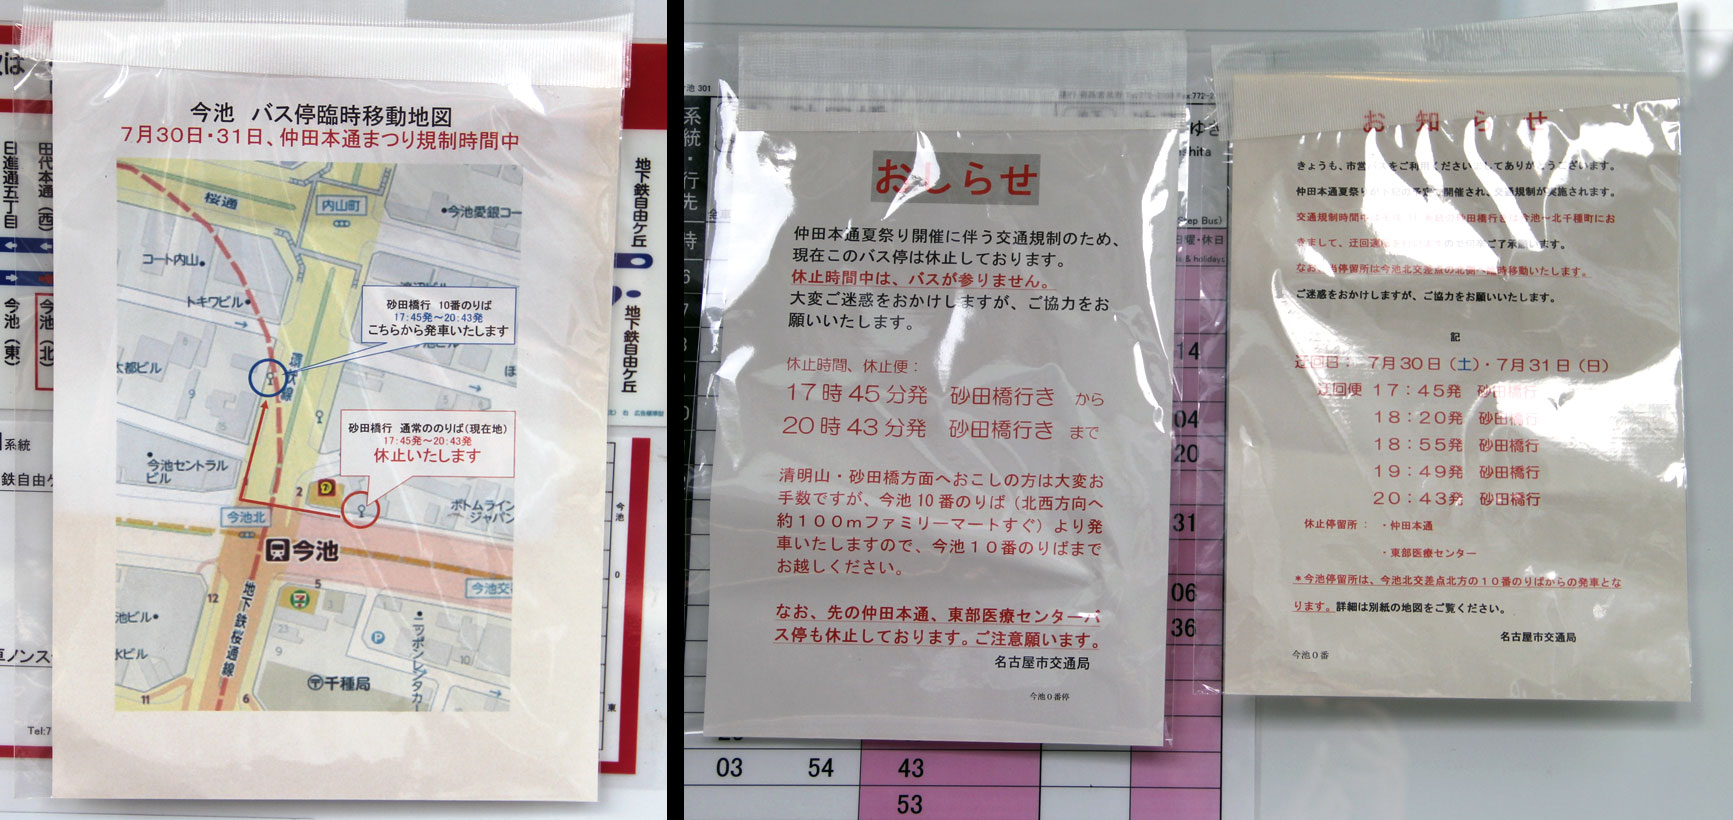 今池 バス停臨時移動地図
7月30日・31日、仲田本通まつり規制時間中
桜通
内山町
今池愛銀コー
コート内山
トキワビル
砂田橋行 10番のりば
17:45発～20:43発
こちらから発車いたします
太都ビル
環状線
砂田橋行 通常ののりば(現在地)
17:45発～20:43発
休止いたします
今池セントラル
ビル
ボトムライン
ジャパン
今池北
今池
今池交
地下鉄桜通線
池ビル
水ビル
ニッポンレンタカー
千種局
12
5
11
6
2
9
10
日進通五丁目
田代本通(西)
今池(東)
今池(北)
地下鉄自由ケ丘
地下鉄自由ケ丘
系統
鉄自由ケ
Tel:7
おしらせ
仲田本通夏祭り開催に伴う交通規制のため、
現在このバス停は休止しております。
休止時間中は、バスが参りません。
大変ご迷惑をおかけしますが、ご協力をお
願いいたします。
休止時間、休止便：
17時45分発 砂田橋行き から
20時43分発 砂田橋行き まで
清明山・砂田橋方面へおこしの方は大変お
手数ですが、今池10番のりば（北西方向へ
約100mファミリーマートすぐ）より発
車いたしますので、今池10番のりばまで
お越しください。
なお、先の仲田本通、東部医療センターバ
ス停も休止しております。ご注意願います。
名古屋市交通局
今池0番停
系統・行先
03 54 43
53
14
04
20
31
06
36
お知らせ
きょうも、市営バスをご利用くださいましてありがとうございます。
仲田本通夏祭りが下記の予定で開催され、交通規制が実施されます。
交通規制時間中は 砂田橋行きは今池～北千種町にお
きまして、迂回運行を行いますので何卒ご了承願います。
なお、当停留所は今池北交差点の北側へ臨時移動いたします。
ご迷惑をおかけしますが、ご協力をお願いいたします。
記
迂回日： 7月30日（土）・7月31日（日）
迂回便 17：45発 砂田橋行
18：20発 砂田橋行
18：55発 砂田橋行
19：49発 砂田橋行
20：43発 砂田橋行
休止停留所： ・仲田本通
・東部医療センター
＊今池停留所は、今池北交差点北方の10番のりばからの発車とな
ります。詳細は別紙の地図をご覧ください。
名古屋市交通局
今池0番